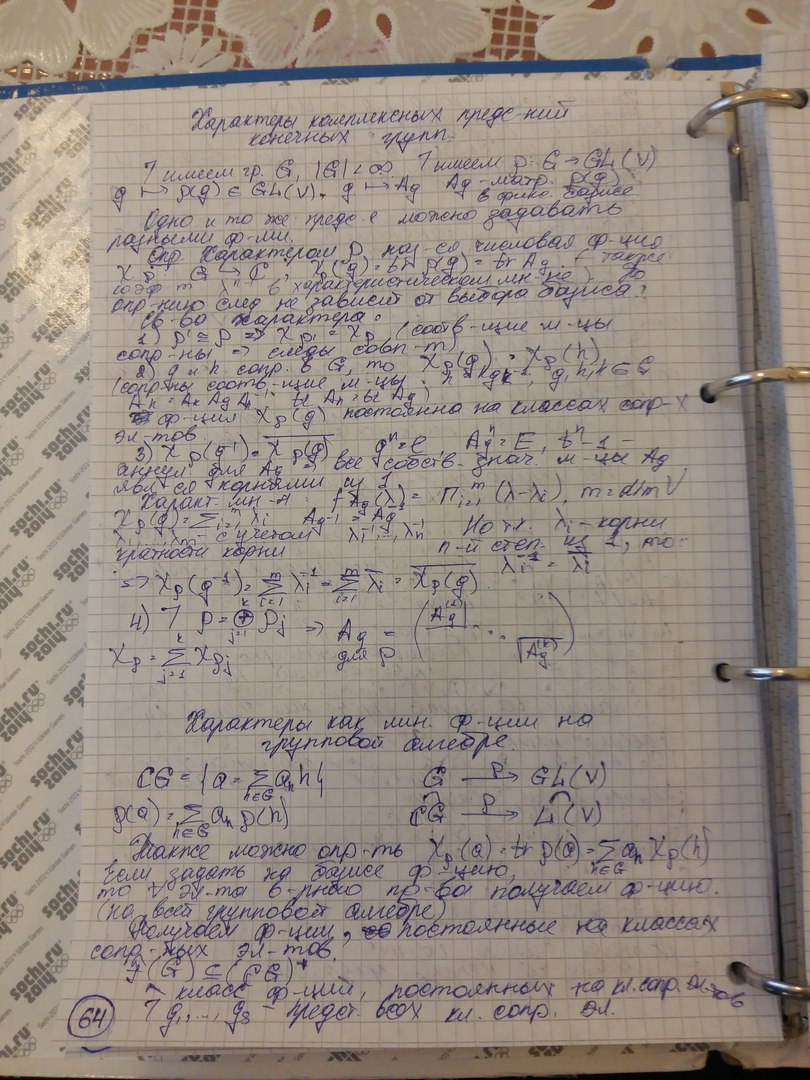 Характеры комплексных предс-ний
конечных групп.
⅂ имеем гр. G, |G| < ∞. ⅂ имеем ρ: G → GL(V)
g ↦ ρ(g) ∈ GL(V). g ↦ Ag Ag - матр. ρ(g)
в фикс базисе
Одно и то же предс-е можно задавать
разными ф-ми.
Опр. Характером ρ наз-ся числовая ф-ция
χρ: G → ℂ, χρ(g) = tr ρ(g) = tr Ag. (также
коэф m λ в характеристическом мн-не) По
опр-нию след не зависит от выбора базиса.
Св-ва характера:
1) ρ' ≅ ρ => χρ' = χρ (соотв-щие м-цы
сопр-ны => следы совп-т)
2) g и h сопр. в G, то χρ(g) = χρ(h)
(сопр-ны соотв-щие м-цы: g, h, k ∈ G
Ah = Ak Ag Ak⁻¹ tr Ah = tr Ag)
ф-ция χρ(g) постоянна на классах сопр-х
эл-тов.
3) χρ(g⁻¹) = \overline{χρ(g)} gⁿ = e, Agⁿ = E, tⁿ - 1 -
аннул. для Ag => все собств. знач. м-цы Ag
явл-ся корнями из 1
Характ. мн-н f_{Ag}(λ) = Π_{i=1}^m (λ - λi), m = dim V
χρ(g) = Σ_{i=1}^m λi Ag⁻¹ = Ag⁻¹
λ1, ..., λm - с учётом λ1⁻¹, ..., λn⁻¹ Но т.к. λi - корни
кратности корни n-й степ. из 1, то:
λi⁻¹ = \overline{λi}
=> χρ(g⁻¹) = Σ_{i=1}^m λi⁻¹ = Σ_{i=1}^m \overline{λi} = \overline{χρ(g)}
4) ⅂ ρ = ⊕_{j=1}^k ρj => Ag = (Ag^{(1)} ⋱ Ag^{(k)})
χρ = Σ_{j=1}^k χρj для ρ
Характеры как лин. ф-ции на
групповой алгебре.
ℂG = {a = Σ_{h∈G} ah h} G —ρ→ GL(V)
ρ(a) = Σ_{h∈G} ah ρ(h) ℂG —ρ→ L(V)
Также можно опр-ть χρ(a) = tr ρ(a) = Σ_{h∈G} ah χρ(h)
Если задать на базисе ф-цию,
то ∀ эл-та в-рного пр-ва получаем ф-цию.
(на всей групповой алгебре)
Получаем ф-ции, постоянные на классах
сопр-ных эл-тов.
F(G) ⊆ (ℂG)*
класс ф-ций, постоянных на кл. сопр. эл-тов
⅂ g1, ..., gs - предст. всех кл. сопр. эл.
64
sochi.ru
2014